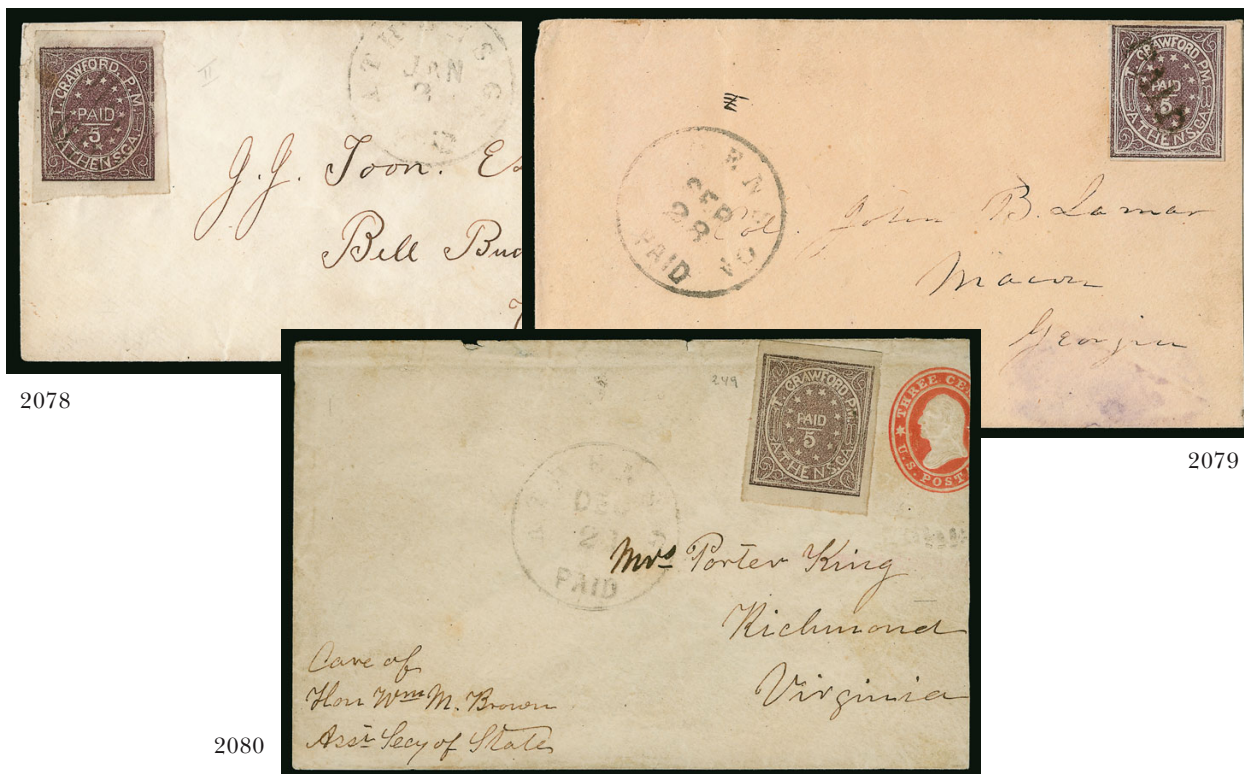 T. CRAWFORD. P.M.
PAID
5
ATHENS.GA.
II
ATHENS G
JAN
J. J. Toon. Es
Bell Buc
2078
T. CRAWFORD. P.M.
PAID
5
ATHENS.GA.
SEP
28
PAID
Col. John B. Lamar
Macon
Georgia
2079
249
T. CRAWFORD. P.M.
PAID
5
ATHENS.GA.
THREE CE
U.S. POST
DEC
PAID
Mrs Porter King
Richmond
Virginia
Care of
Hon Wm M. Brown
Asst Secy of State
2080